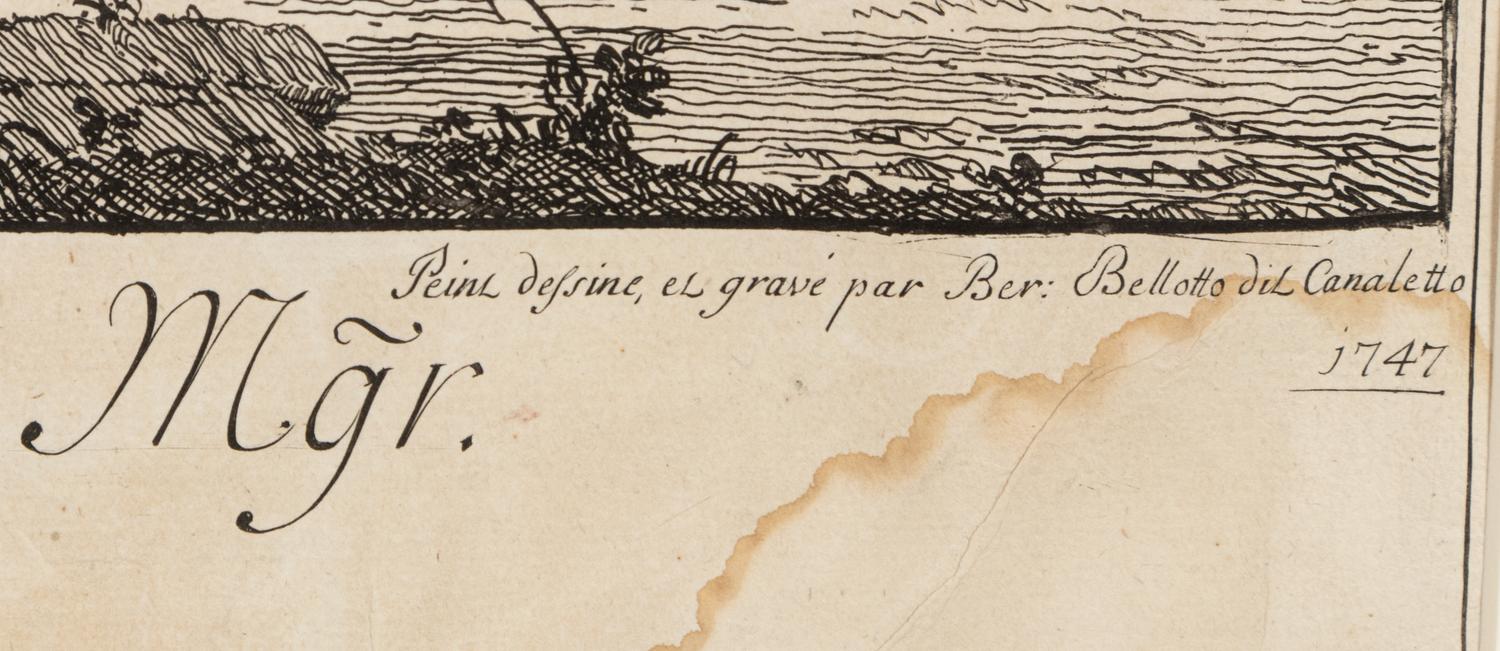 Peint deſsine, et gravé par Ber: Bellotto dit Canaletto
Mg̃r.
1747